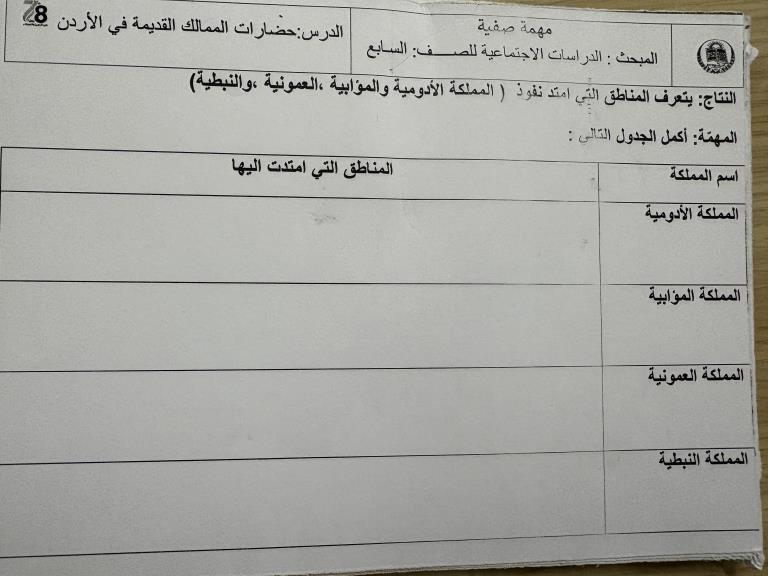 مهمة صفية
المبحث : الدراسات الاجتماعية للصـــــف: السابع
الدرس:حضارات الممالك القديمة في الأردن
28
النتاج: يتعرف المناطق التي امتد نفوذ ( المملكة الأدومية والمؤابية ،العمونية ،والنبطية)
المهمّة: أكمل الجدول التالي :
اسم المملكة
المناطق التي امتدت اليها
المملكة الأدومية
المملكة المؤابية
المملكة العمونية
المملكة النبطية